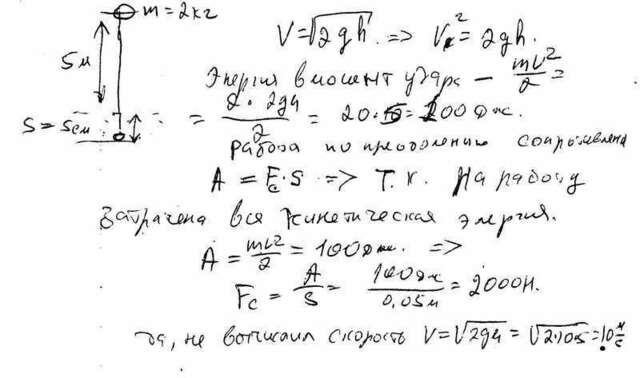 m = 2кг
5м
S = 5см
V = √2gh. => V² = 2gh.
Энергия в момент удара — mV²/2 =
= 2 · 2gh / 2 = 20 · 5 = 100 дж.
Работа по преодолению сопротивлена
A = Fc · S => Т.к. на работу
затрачена вся кинетическая энергия.
A = mV²/2 = 100 дж. =>
Fc = A/S = 100дж / 0,05м = 2000Н.
да, не вписал скорость V = √2gh = √2·10·5 = 10 м/с